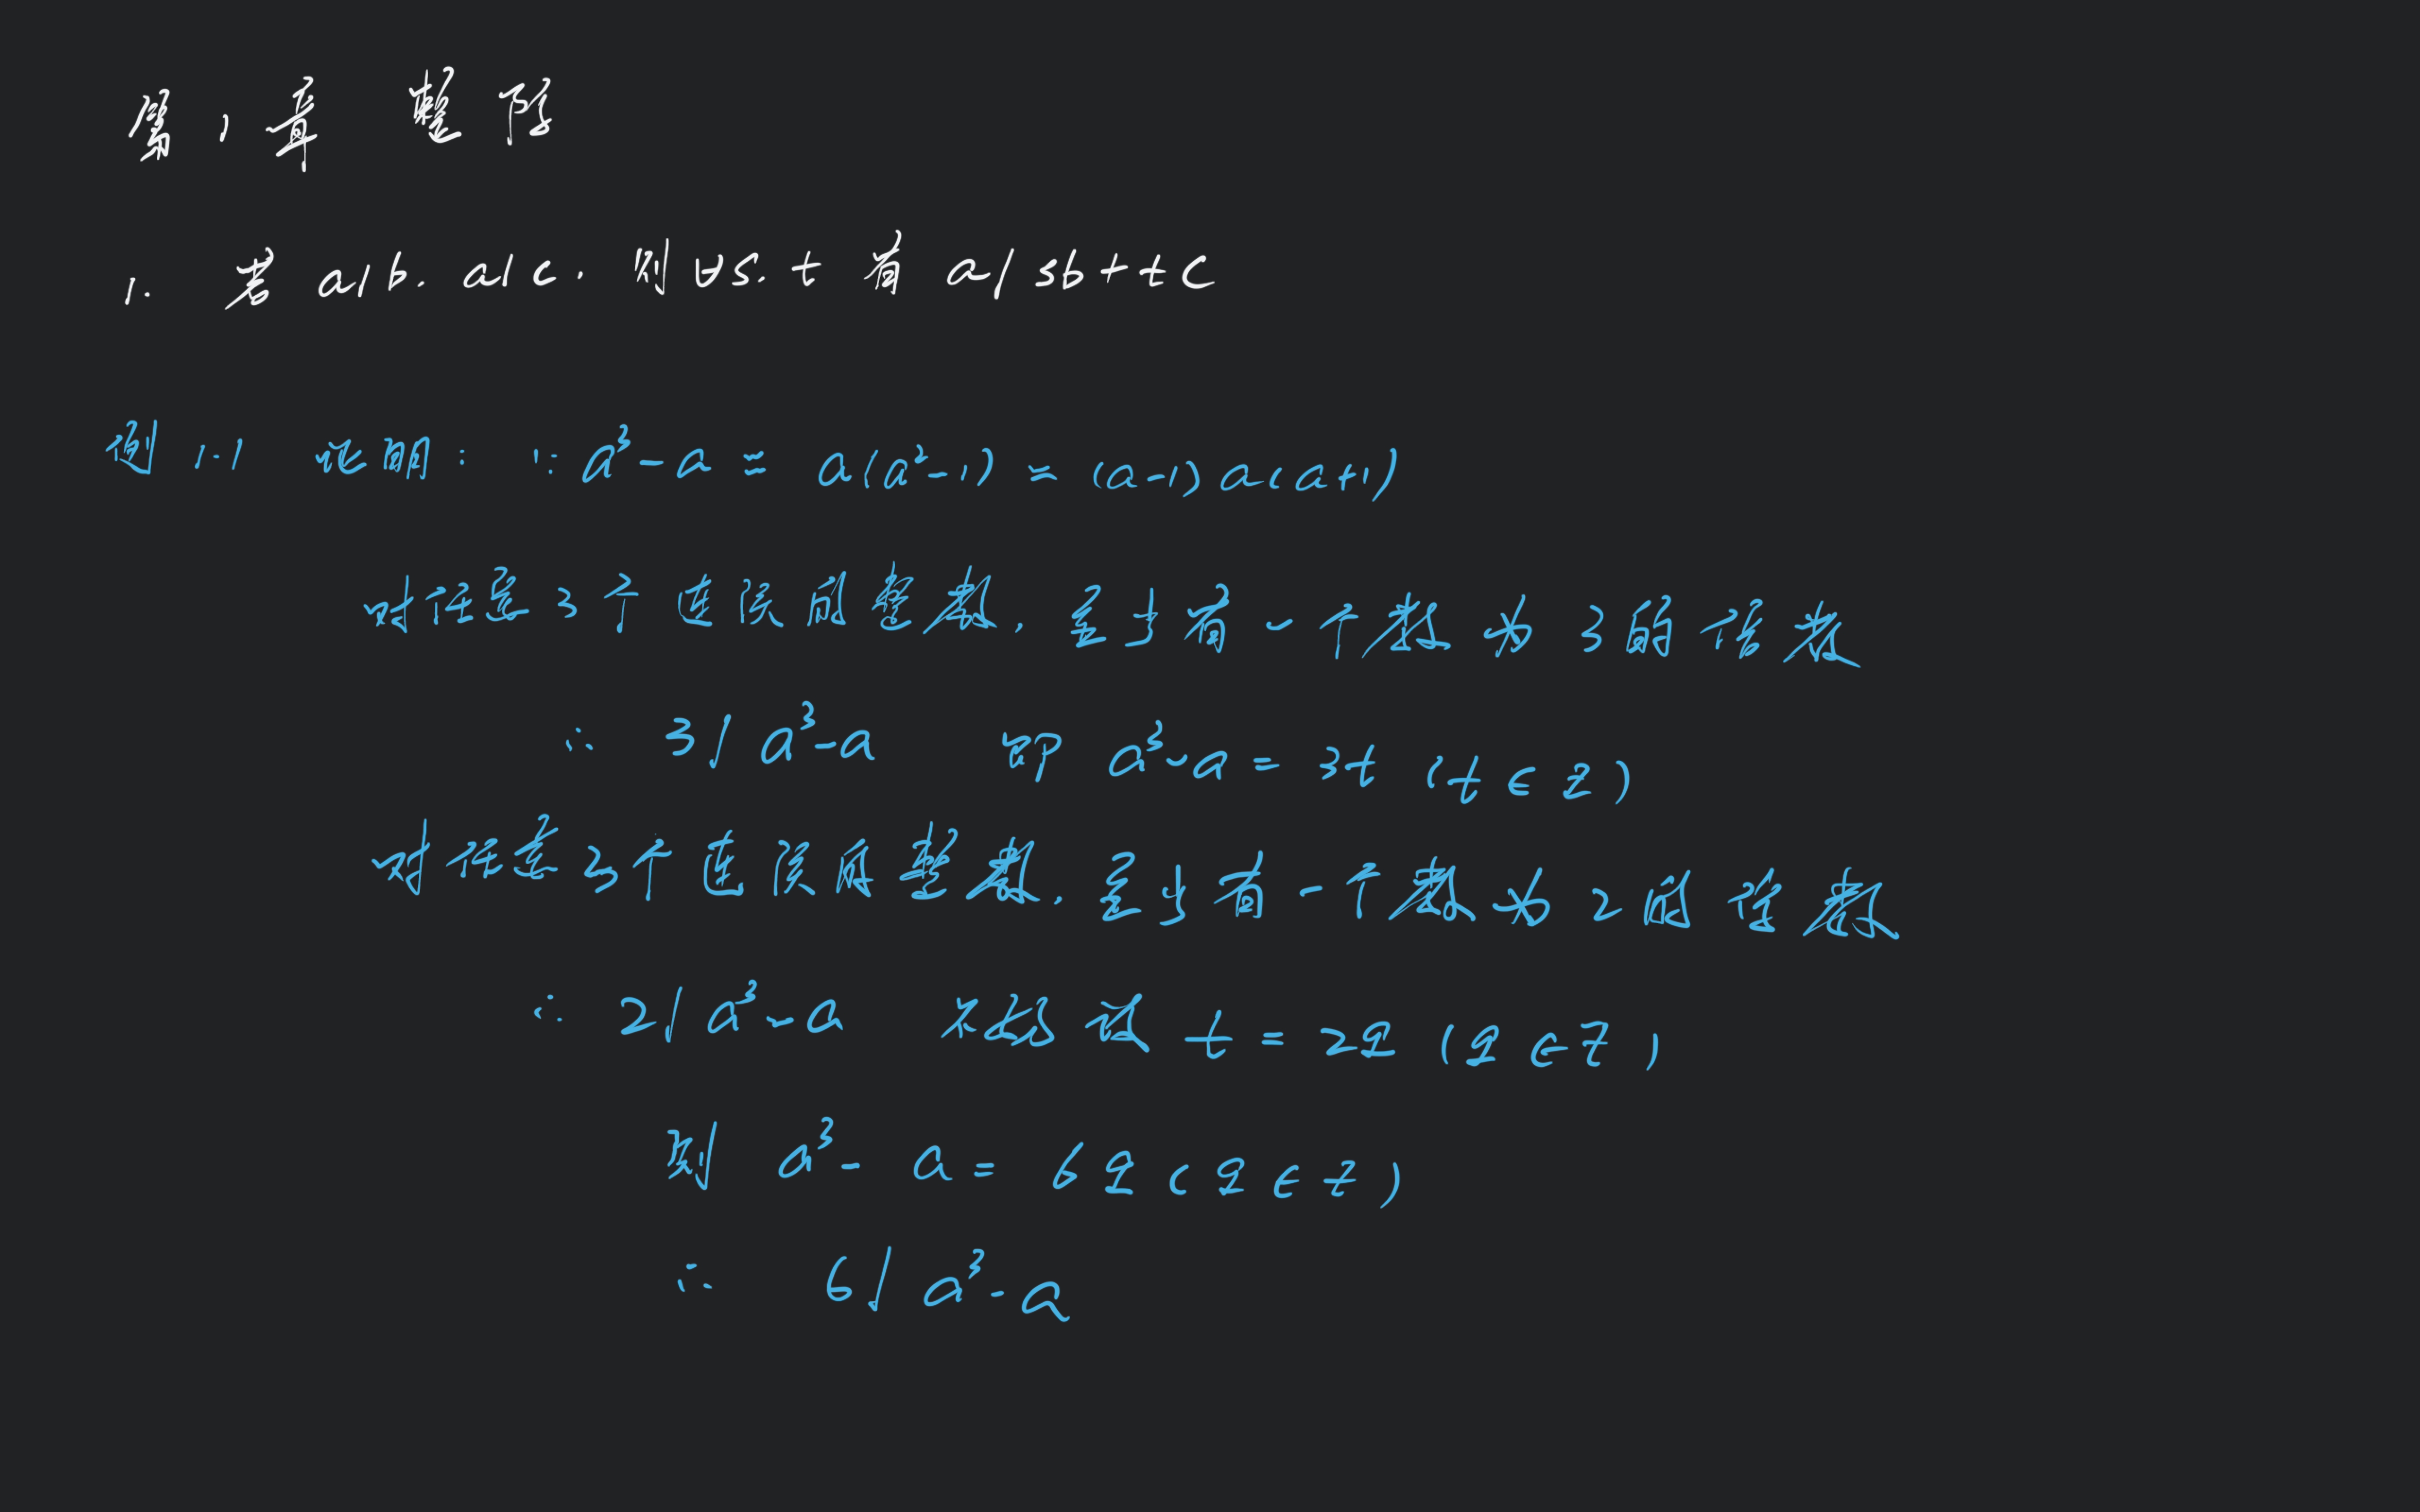 第1章 整除
1. 若 a|b. a|c. 则∀s.t 有 a|sb+tc
例1-1 证明: ∵ a³-a = a(a²-1) = (a-1)a(a+1)
对任意3个连续的整数, 至少有一个数为3的倍数
∴ 3|a³-a 即 a³-a = 3t (t∈Z)
对任意2个连续的整数, 至少有一个数为2的倍数
∴ 2|a³-a 不妨设 t = 2q (q∈Z)
则 a³-a = 6q (q∈Z)
∴ 6|a³-a